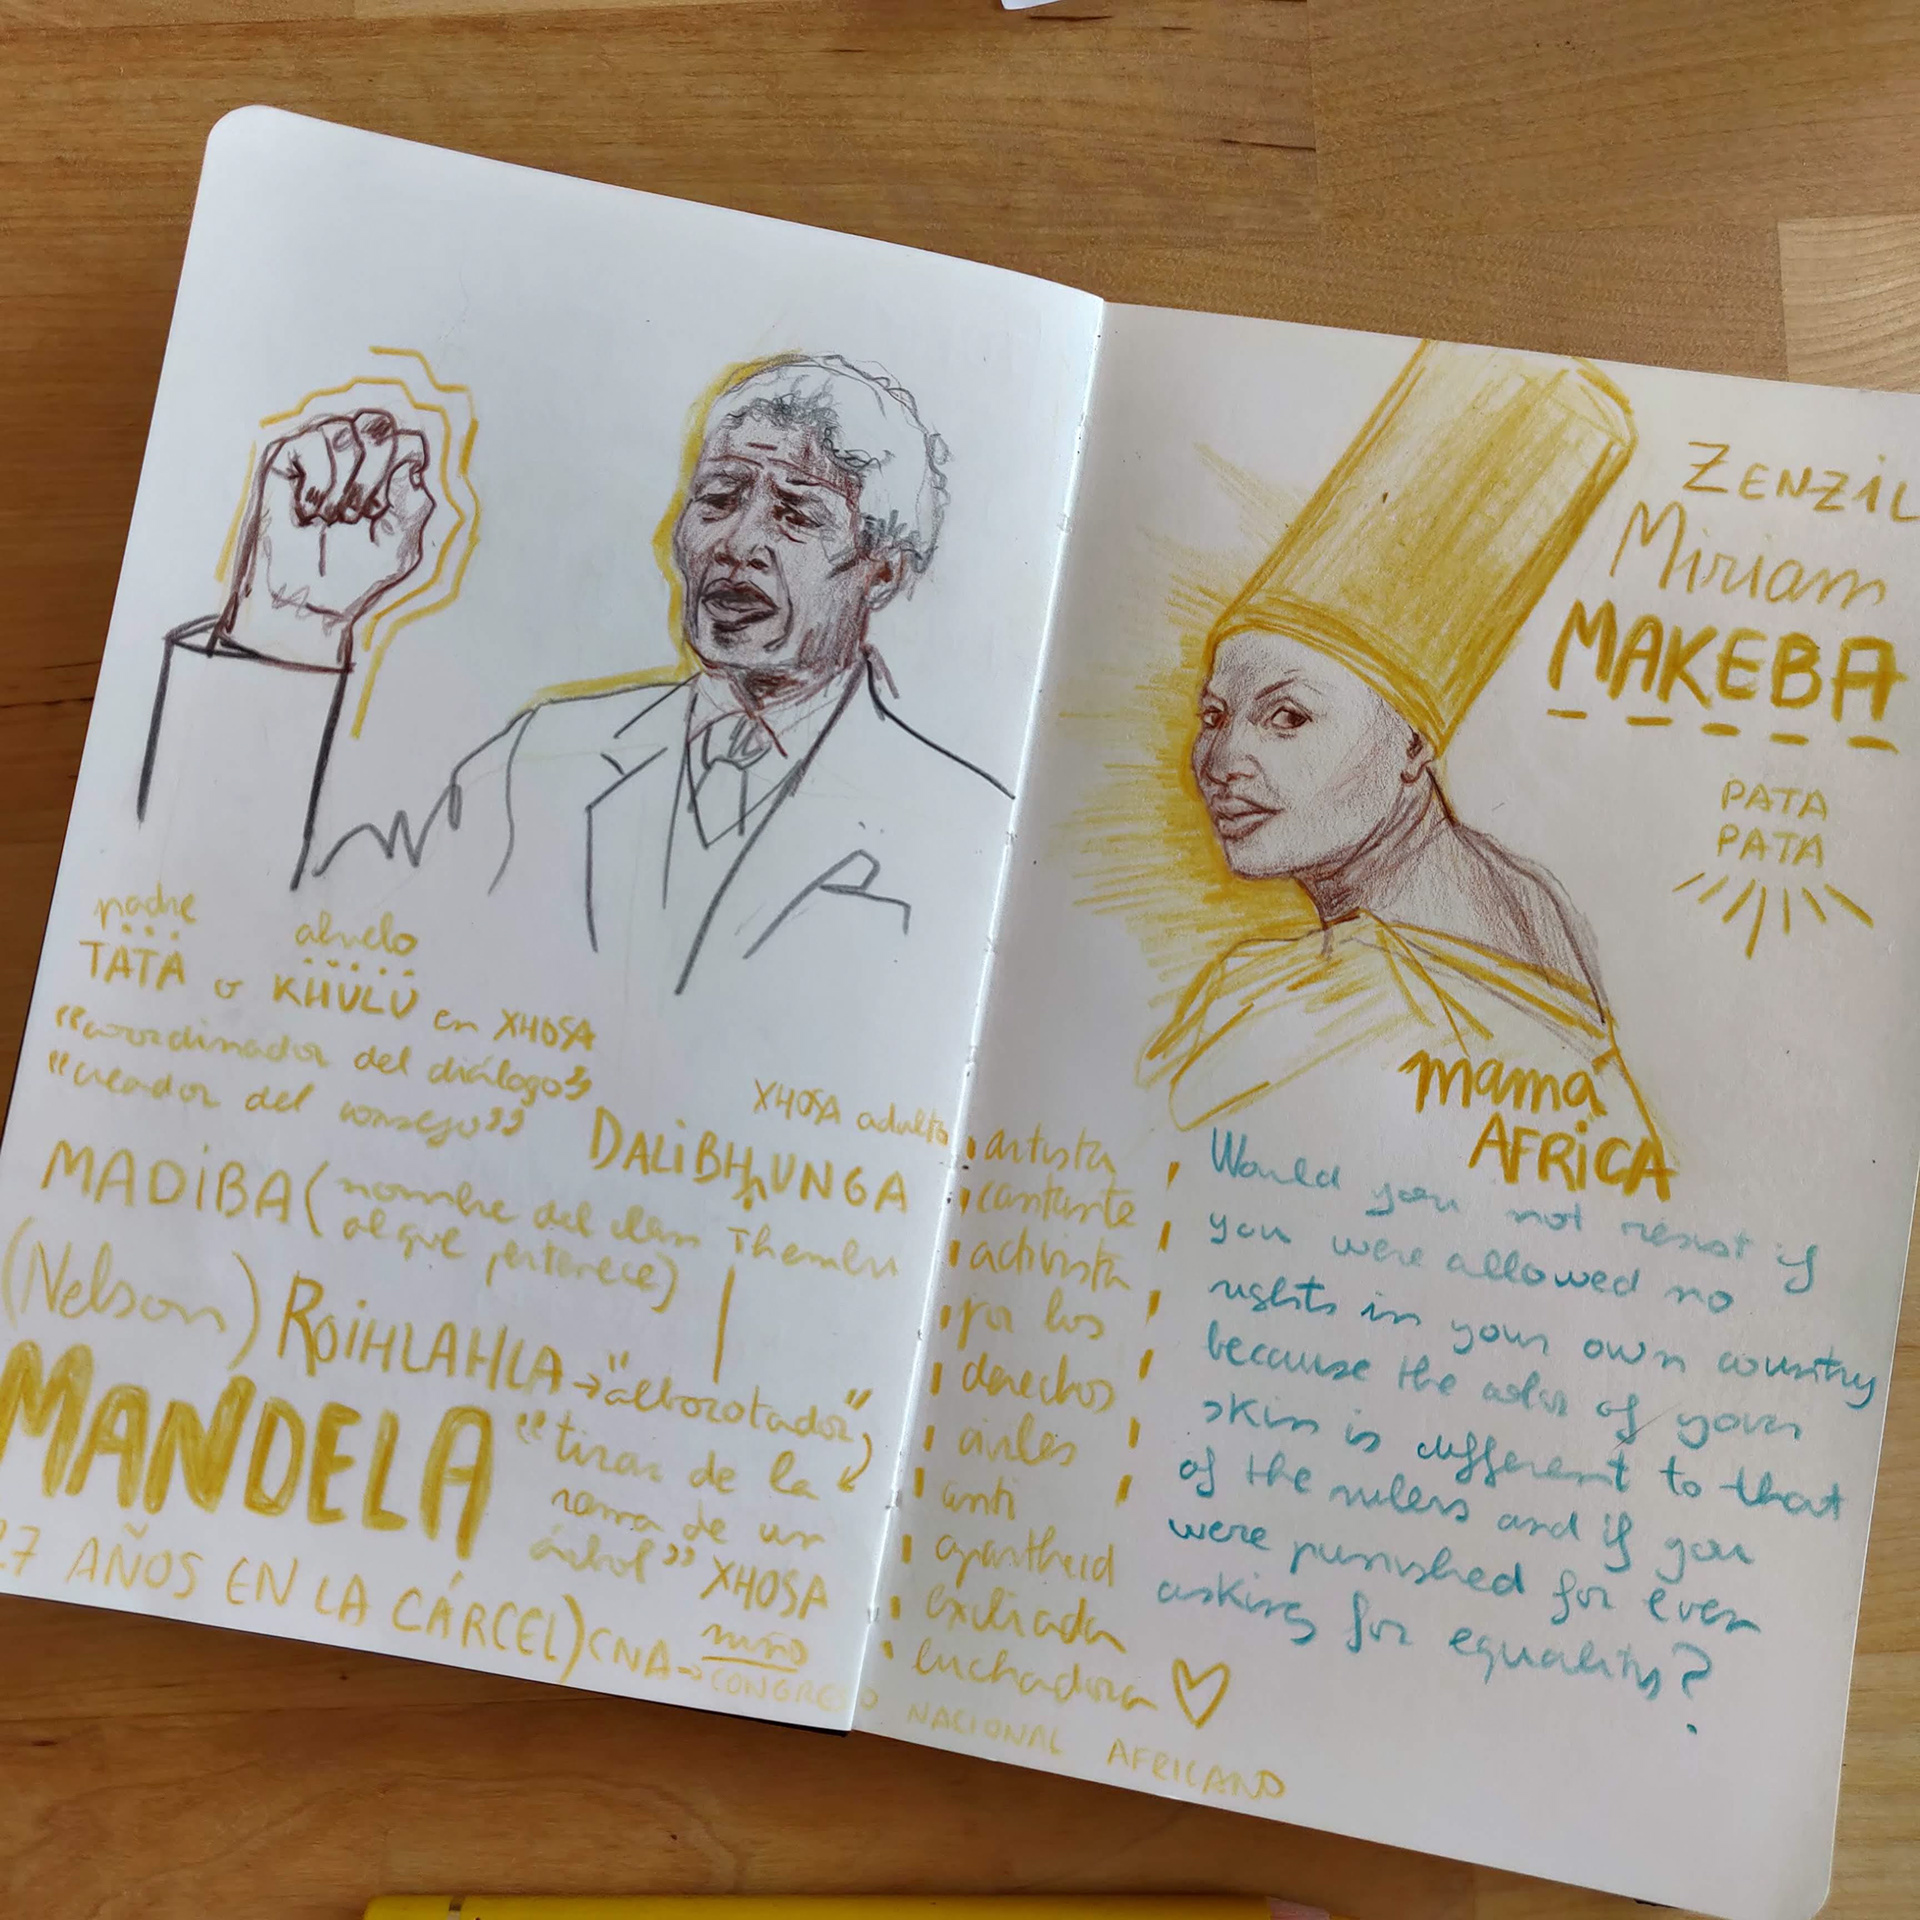 padre
abuelo
TATA o KHULU en XHOSA
"coordinador del diálogo"
"creador del consejo"
XHOSA adulto
DALIBHUNGA
MADIBA (nombre del clan Thembu
al que pertenece)
(Nelson) ROIHLAHLA → "alborotador"
MANDELA
"tirar de la
rama de un
árbol" XHOSA
niño
27 AÑOS EN LA CÁRCEL) CNA → CONGRESO NACIONAL AFRICANO
ZENZIL
Miriam
MAKEBA
PATA
PATA
mamá
AFRICA
artista
cantante
activista
por los
derechos
civiles
anti
apartheid
exiliada
luchadora
Would you not resist if
you were allowed no
rights in your own country
because the color of your
skin is different to that
of the rulers and if you
were punished for even
asking for equality?